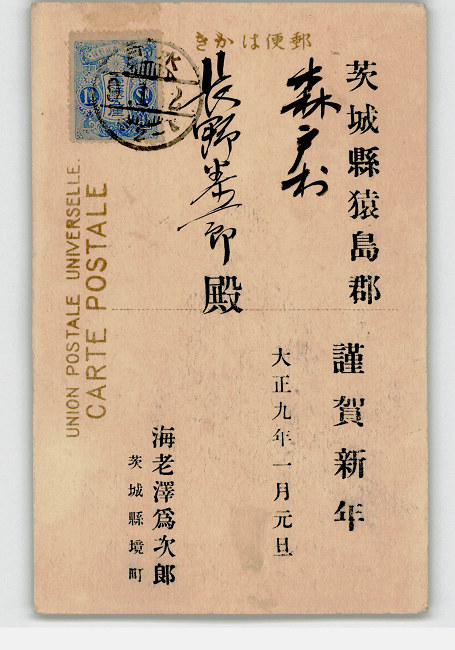 郵便はかき
茨城縣猿島郡
森戸村
長野 一郎殿
謹賀新年
大正九年一月元旦
海老澤爲次郎
茨城縣境町
UNION POSTALE UNIVERSELLE.
CARTE POSTALE